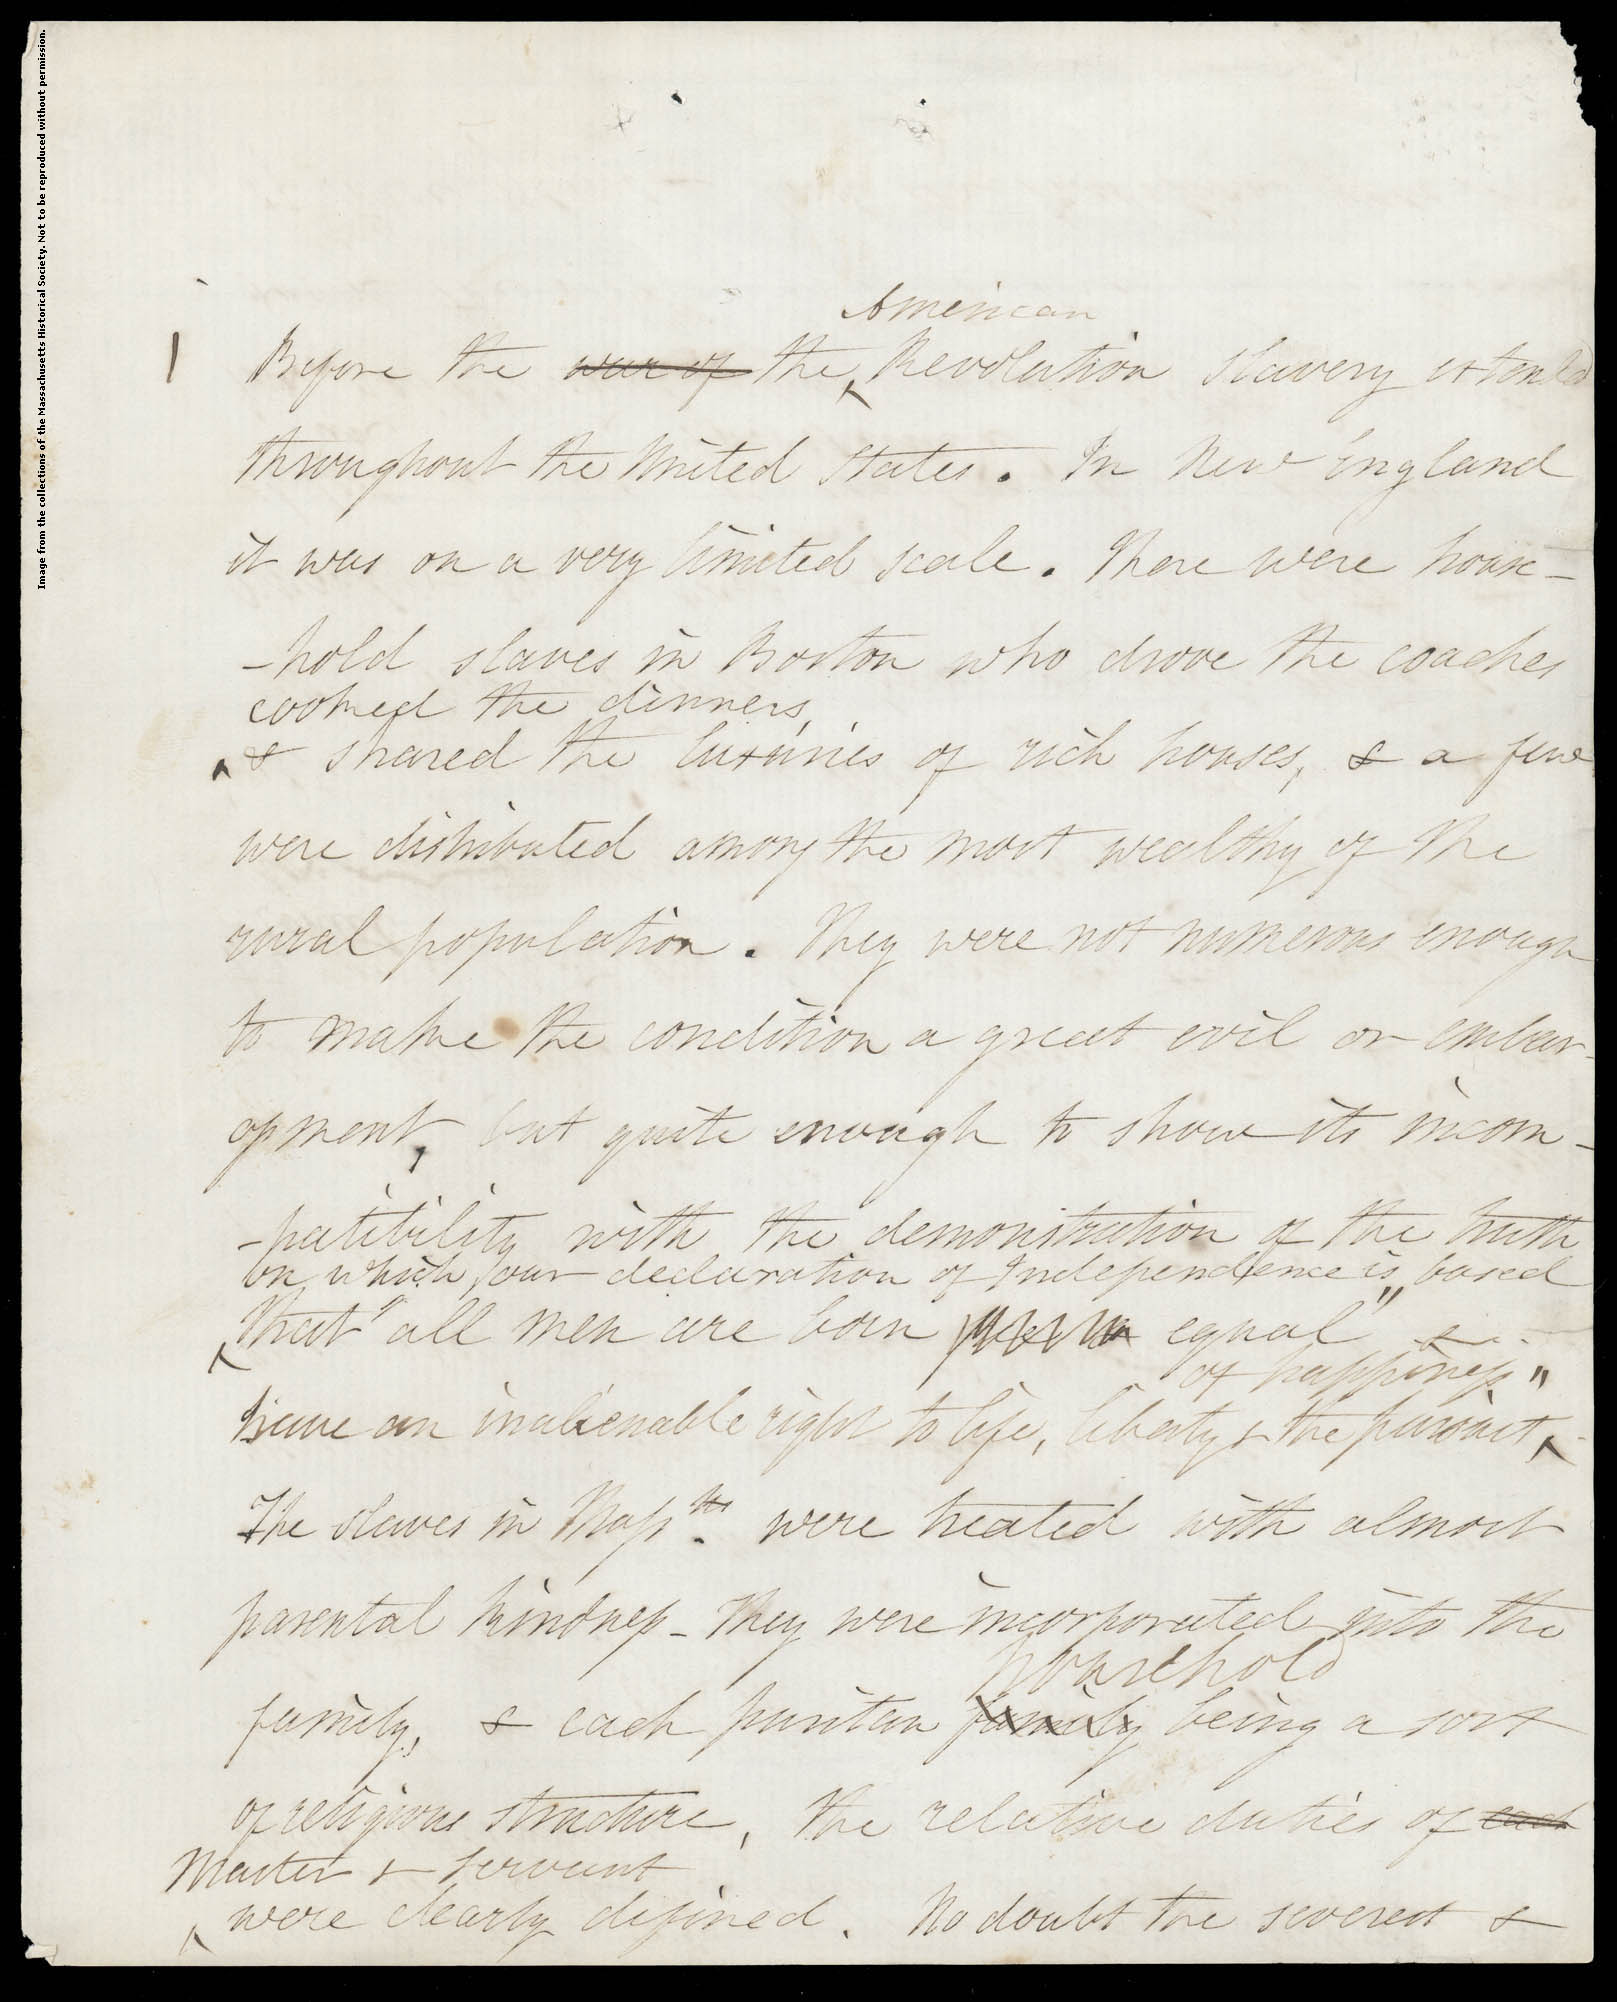 Image from the collections of the Massachusetts Historical Society. Not to be reproduced without permission.
American
1 Before the war of the Revolution slavery extended
throughout the United States. In New England
it was on a very limited scale. There were house-
-hold slaves in Boston who drove the coaches
cooked the dinners,
& shared the luxuries of rich houses, & a few
were distributed among the most wealthy of the
rural population. They were not numerous enough
to make the condition a great evil or embar-
opment, but quite enough to show its incom-
-patibility with the demonstration of the truth
on which our declaration of Independence is based
that "all men are born equal" &
of happiness"
have an inalienable right to life, liberty & the pursuit,
The slaves in Massts. were treated with almost
parental kindness - They were incorporated into the
household
family, & each puritan family being a sort
of religious structure, the relative duties of each
Master & servant
were clearly defined. No doubt the severest &